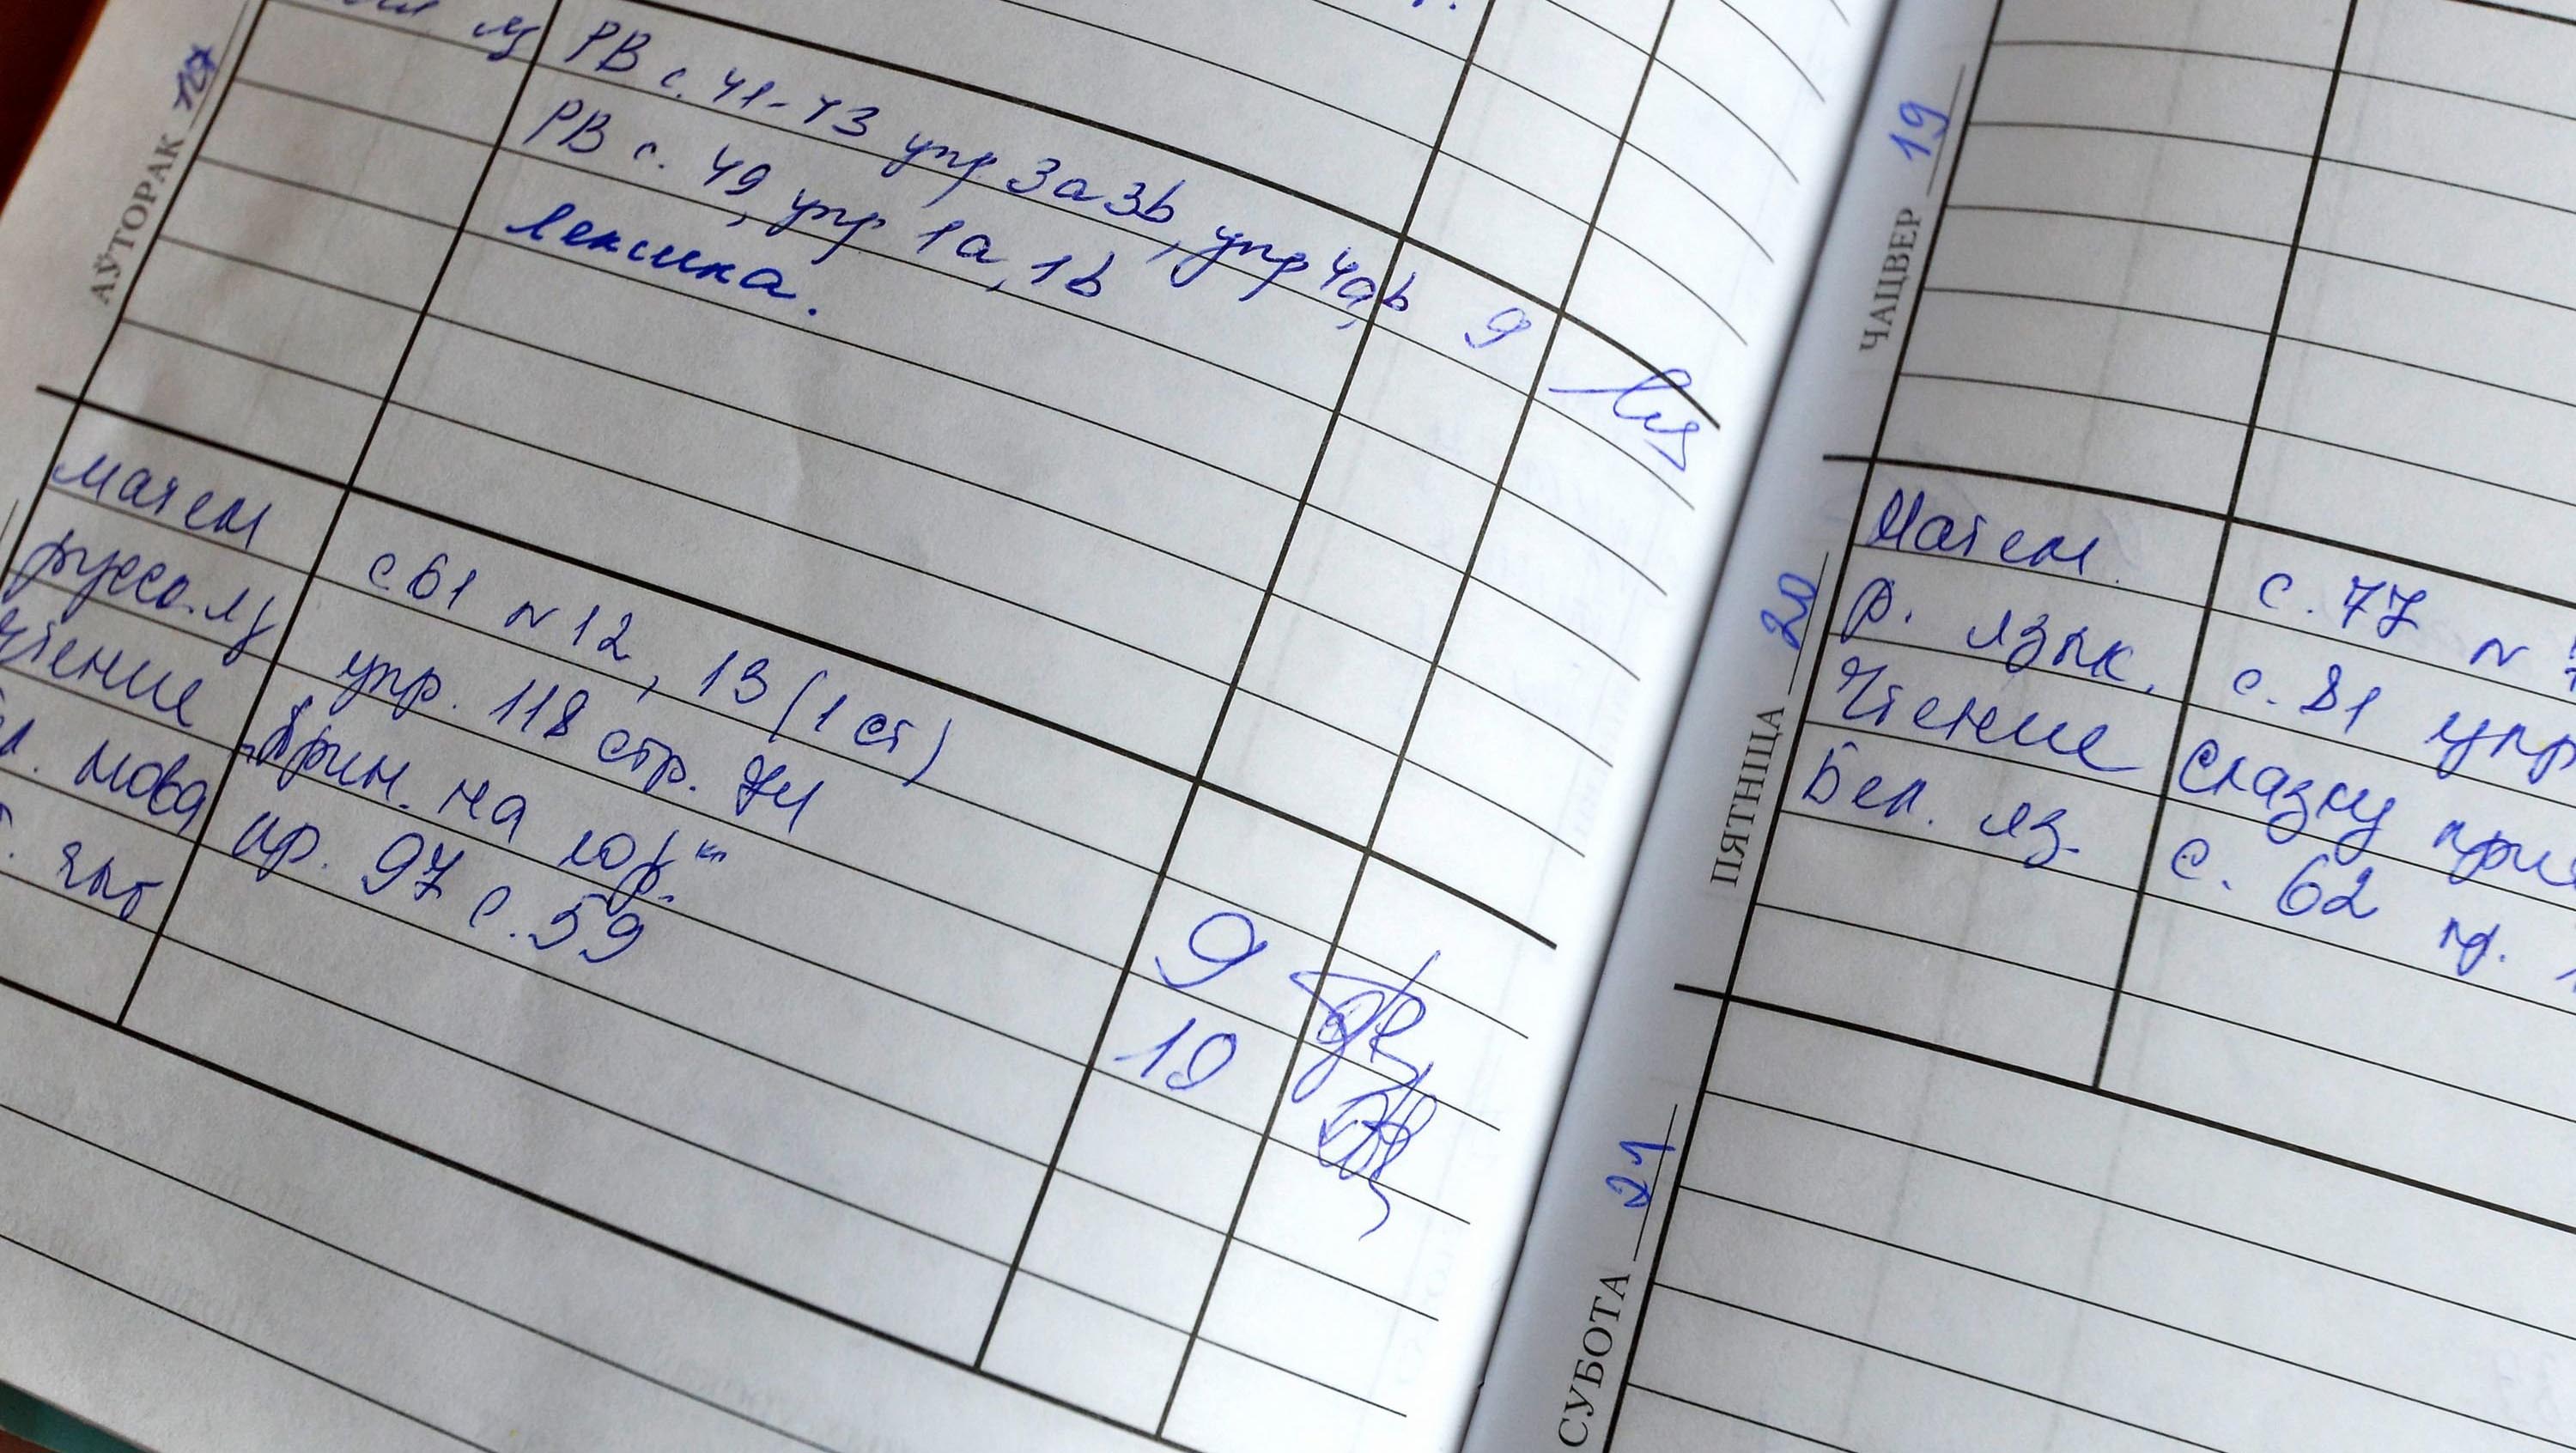 АЎТОРАК
яз РВ с. 41-43 упр 3а 3b, упр 4a,b 9
РВ с. 49, упр 1а, 1b
лексика.
матем с 61 № 12, 13 (1 ст)
русск. яз упр. 118 стр. 74
Чтение Прин. на юр.
мова пр. 97 с. 59 9
10
ЧАЦВЕР 19
ПЯТНІЦА 20
Матем. с. 77 №
Р. язык. с. 81 упр
Чтение Сказку
Бел. яз. с. 62
СУБОТА 21